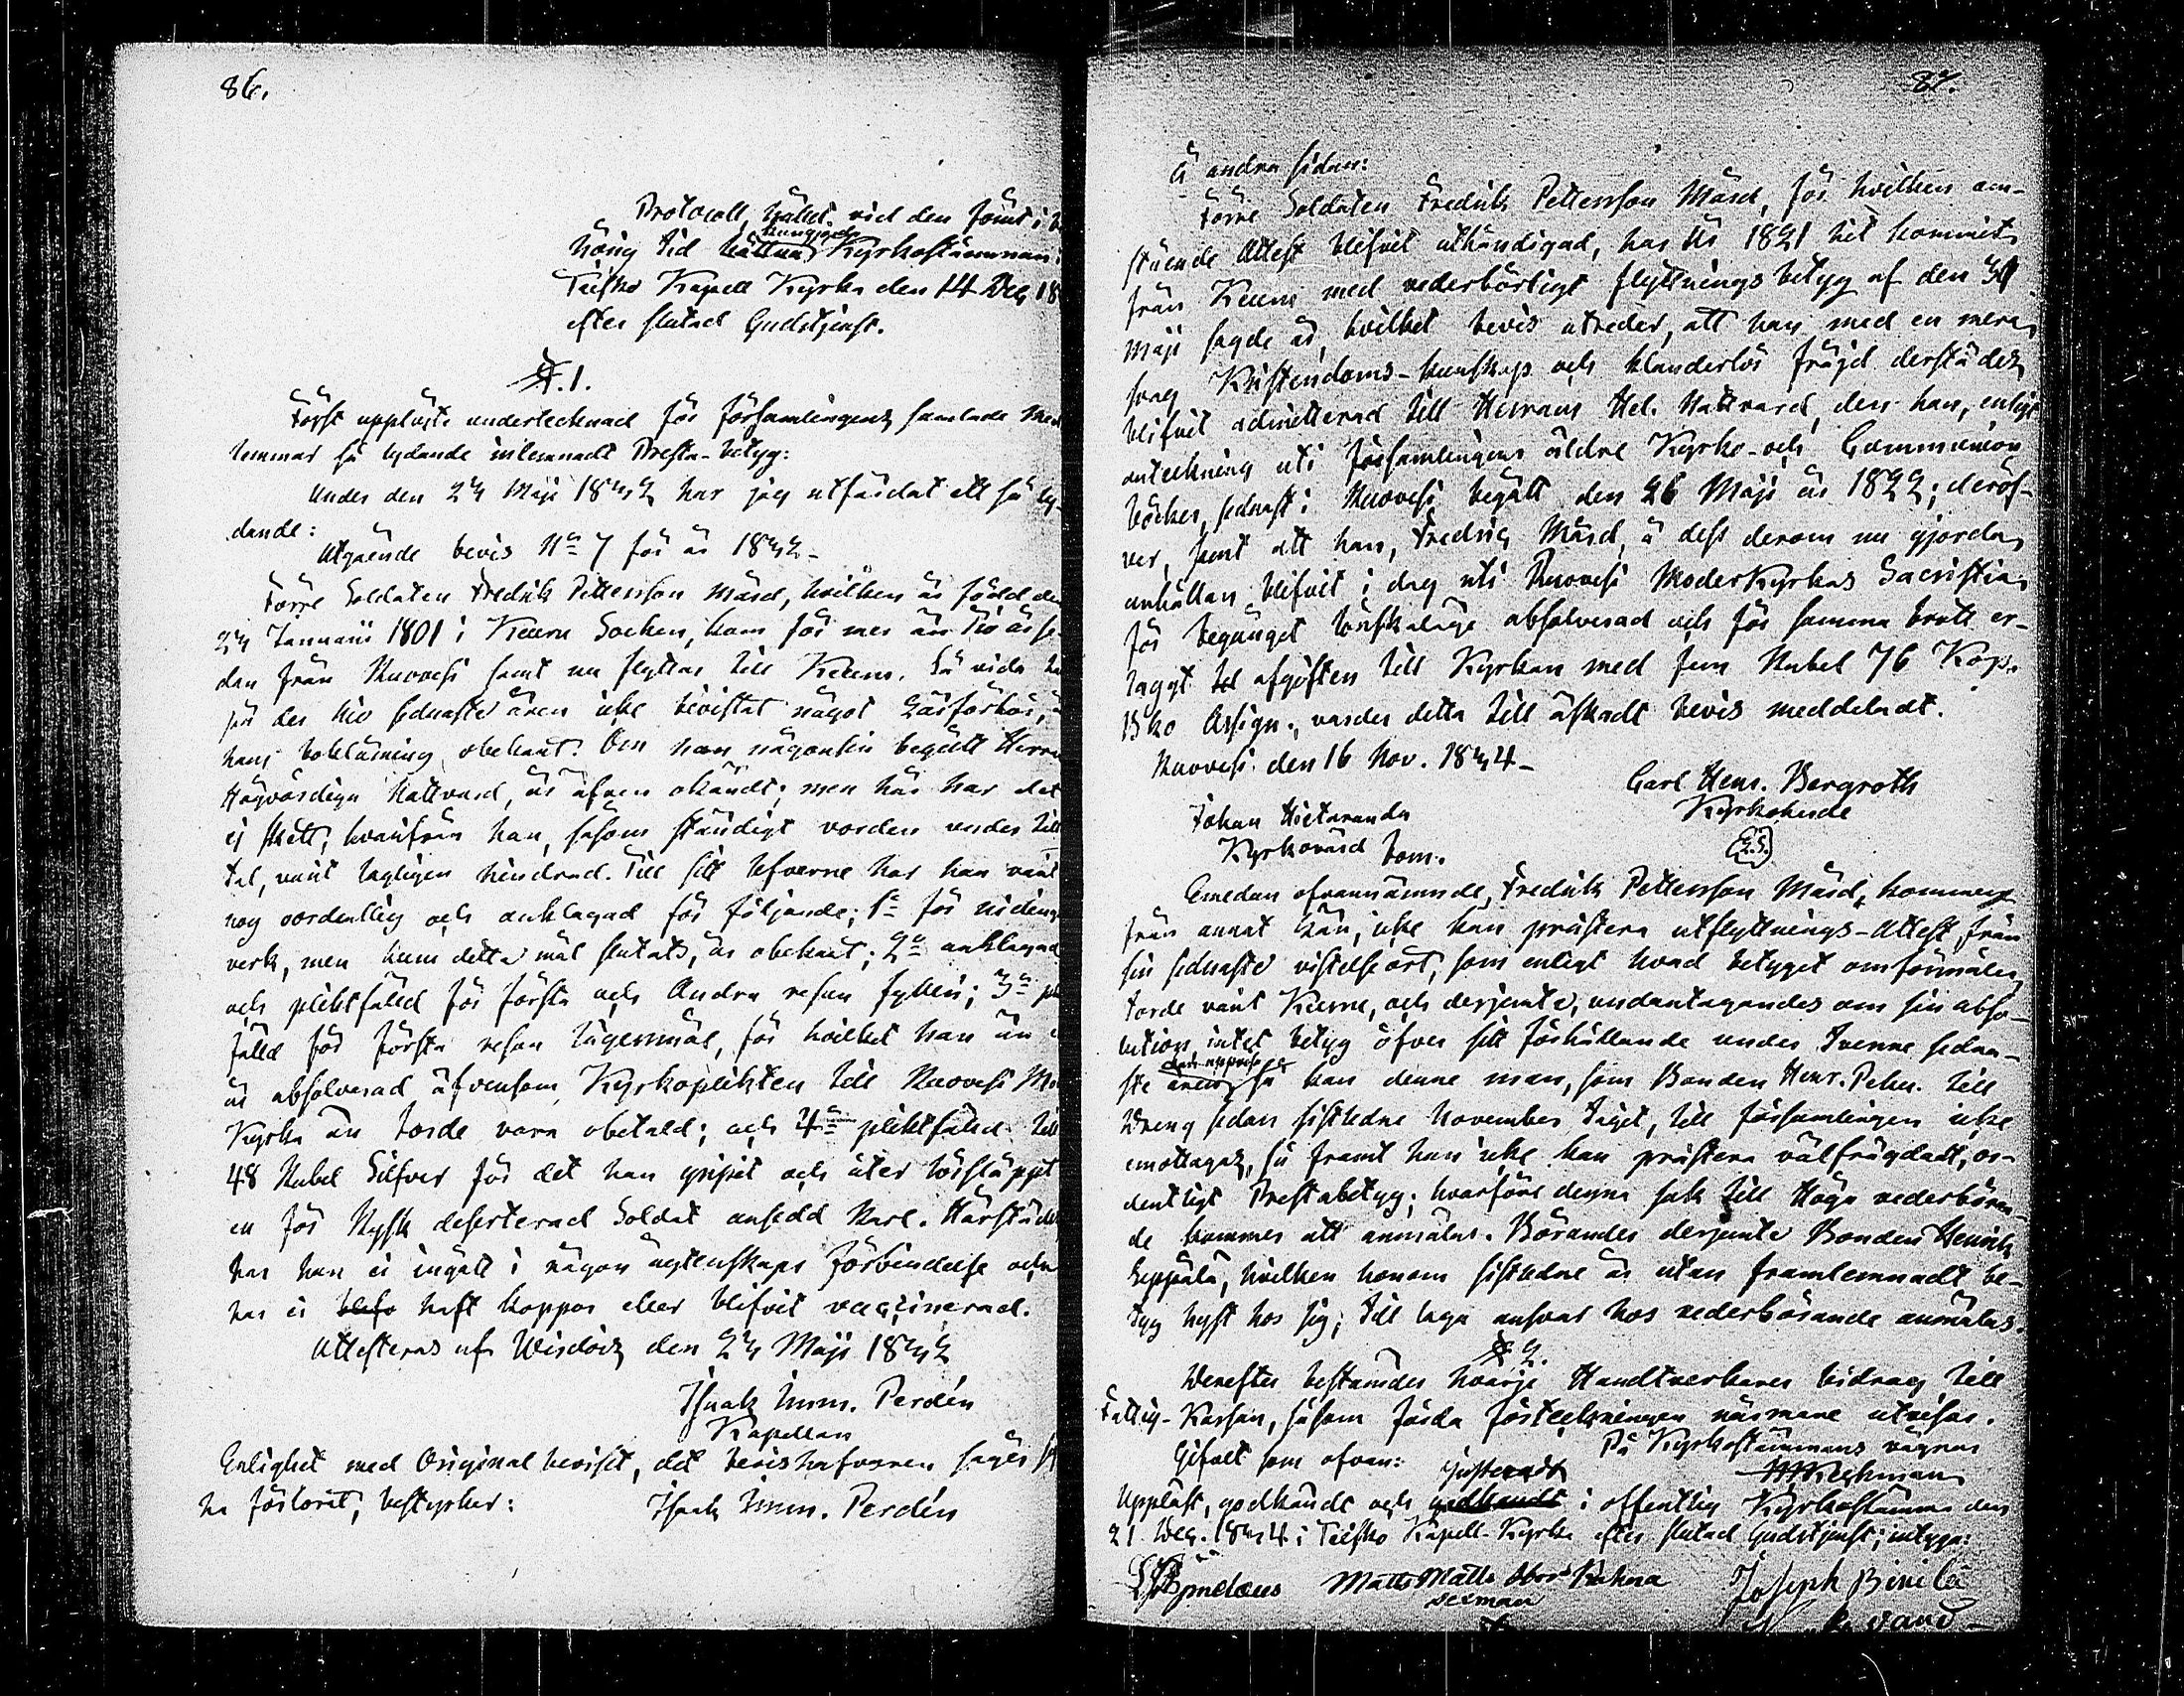 86.
Protocoll, hållet vid den förut i be-
hörig tid hållna kungjorda Kyrkostämman i
Teisko Kapell Kyrka den 14 Dec. 18
efter slutad Gudstjenst.
§. 1.
Först uppläste undertecknad för församlingens samlade Med
lemmar så lydande inlemnadt Presta-betyg:
Under den 24 Maji 1842 har jag utfärdat ett så ly-
dande:
Utgående bevis No 7 för år 1842-
Förre Soldaten Fredrik Pettersson Mård, hvilken är född den
24 Januarii 1801 i Keuru Socken, kom för mer än Tio år se-
dan från Ruovesi samt nu flyttar till Keuru. Så vida han
på de nio sednaste åren icke bevistat något Läsförhör, är
hans bokläsning obekant. Om han någonsin begått Herrans
Högvördiga Nattvard, är äfven okändt; men här har det
ej skett, hvarifrån han, såsom ständigt vorden under till
tal, varit lagligen hindrad. Till sitt lefverne har han varit
nog oordentlig och anklagad för följande; 1o för nidings
verk, men huru detta mål slutats, är obekant; 2o anklagad
och pliktfälld för första och Andra resan fylleri; 3o plikt
fälld för första resan lägersmål, för hvilket han än ej
är absolverad äfvensom Kyrkoplikten till Ruovesi Mo
Kyrka än torde vara obetald; och 4o pliktfälld till
48 Rubel Silfver för det han gripit och åter lössläppt
en för Rysk deserterad Soldat ansedd Karl. Härstädes
har han ei ingått i någon ägtenskaps förbindelse och
har ei blifv haft koppor eller blifvit vaccinerad.
Attesteras af Wirdois den 24 Maji 1842
Isaak Imm. Perdén
Kapellan
Enlighet med Original beviset, det bevishafvaren säger sig
ha förlorat, bestyrker:
Isaak Imm. Perdén
87.
Å andra sidan:
Förre Soldaten Fredrik Pettersson Mård, för hvilken om-
stående Attest blifvit uthändigad, har År 1821 hit kommit
från Keuru med vederbörligt flyttnings betyg af den 30
Maji sagde år, hvilket bevis utreder, att han med en mera
svag Kristendoms-kunskap och klanderlös frägd derstädes
blifvit admitterad till Herrans Hel. Nattvard, den han, enligt
anteckning uti församlingens äldre Kyrko-och Communion
böcker, sednast i Ruovesi begått den 26 Maji år 1822; deröf-
ver, samt att han, Fredrik Mård, å dess derom nu gjorda
anhållan blifvit i dag uti Ruovesi Moderkyrkas Sacristia
för begånget lönskaläge absolverad och för samma brott er-
laggt till afgiften till Kyrkan med fem Rubel 76 Kop.
Bko Assign., varder detta till äskadt bevis meddeladt.
Ruovesi den 16 Nov. 1844-
Carl Henr. Bergroth
Kyrkoherde
(L.S.)
Johan Hietaranda
Kyrkovärd bom.
Emedan ofvannämnde, Fredrik Pettersson Mård, kommen
från annat Län, icke kan prästera utflyttnings-Attest från
sin sednaste vistelseort, som enligt hvad betyget omförmäler,
torde varit Keuru, och derjemte, undantagandes om sin abso-
lution, intet betyg öfver sitt förhållande under Tvenne sedna-
ste åren så kan denne man, som Bonden Henr. Pehn. till
Dreng sedan sistledne November Taget, till församlingen icke
emottagas, så framt han icke kan prästera välfrägdadt, or-
dentligt Prestabetyg; hvarföre denna sak till Höga vederböran-
de kommer att anmälas. Börandes derjemte Bonden Henrik
Seppälä, hvilken honom sistledne år utan framlemnadt be-
tyg hyst hos sig, till laga ansvar hos vederbörande anmälas.
§ 2.
Derefter bestämdes hvarje Handtverkares bidrag till
Fattig-Kassan, såsom förda förteckningen närmare utvisar.
Gifvet som ofvan:
På Kyrkostämmans vägnar
Uppläst, godkändt och godkändt justeradt i offentlig Kyrkostämma den
21 Dec. 1844 i Teisko Kapell-Kyrka efter slutad Gudstjenst; intyga:
Matts Matts
sexman
Joseph